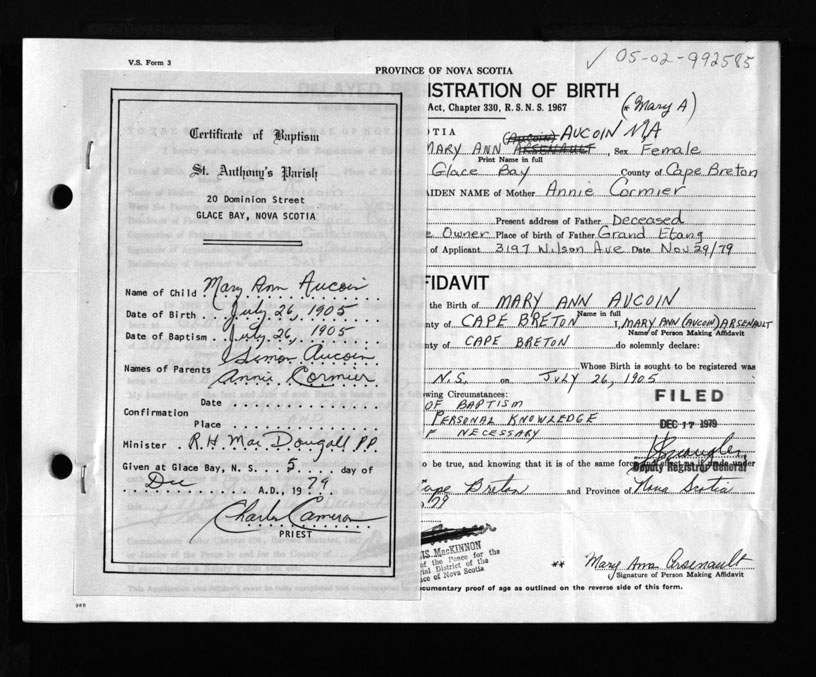 ✓ 05-02-992585
V.S. Form 3
PROVINCE OF NOVA SCOTIA
ISTRATION OF BIRTH
Act, Chapter 330, R.S.N.S. 1967
(* Mary A)
Certificate of Baptism
St. Anthony's Parish
20 Dominion Street
GLACE BAY, NOVA SCOTIA
Name of Child Mary Ann Aucoin
Date of Birth July 26, 1905
Date of Baptism July 26, 1905
Names of Parents Simon Aucoin
Annie Cormier
Date
Confirmation
Place
Minister R.H. Mac Dougall P.P.
Given at Glace Bay, N. S. 5 day of
Dec A.D., 19 79
Charles Cameron
PRIEST
OTIA (Aucoin) AUCOIN MA
MARY ANN ARSENAULT, Sex Female
Print Name in full
Glace Bay County of Cape Breton
AIDEN NAME of Mother Annie Cormier
Present address of Father Deceased
e Owner Place of birth of Father Grand Etang
of Applicant 3197 Wilson Ave Date Nov. 29/79
FFIDAVIT
the Birth of MARY ANN AUCOIN
Name in full
nty of CAPE BRETON I, MARY ANN (AUCOIN) ARSENAULT
Name of Person Making Affidavit
nty of CAPE BRETON do solemnly declare:
Whose Birth is sought to be registered was
N.S. on JULY 26, 1905
llowing Circumstances:
OF BAPTISM
PERSONAL KNOWLEDGE
F NECESSARY
FILED
DEC 17 1979
Deputy Registrar General
to be true, and knowing that it is of the same force
made under
Cape Breton and Province of Nova Scotia
/79
IS MacKINNON
of the Peace for the
ial District of the
ce of Nova Scotia
** Mary Ann Arsenault
Signature of Person Making Affidavit
cumentary proof of age as outlined on the reverse side of this form.